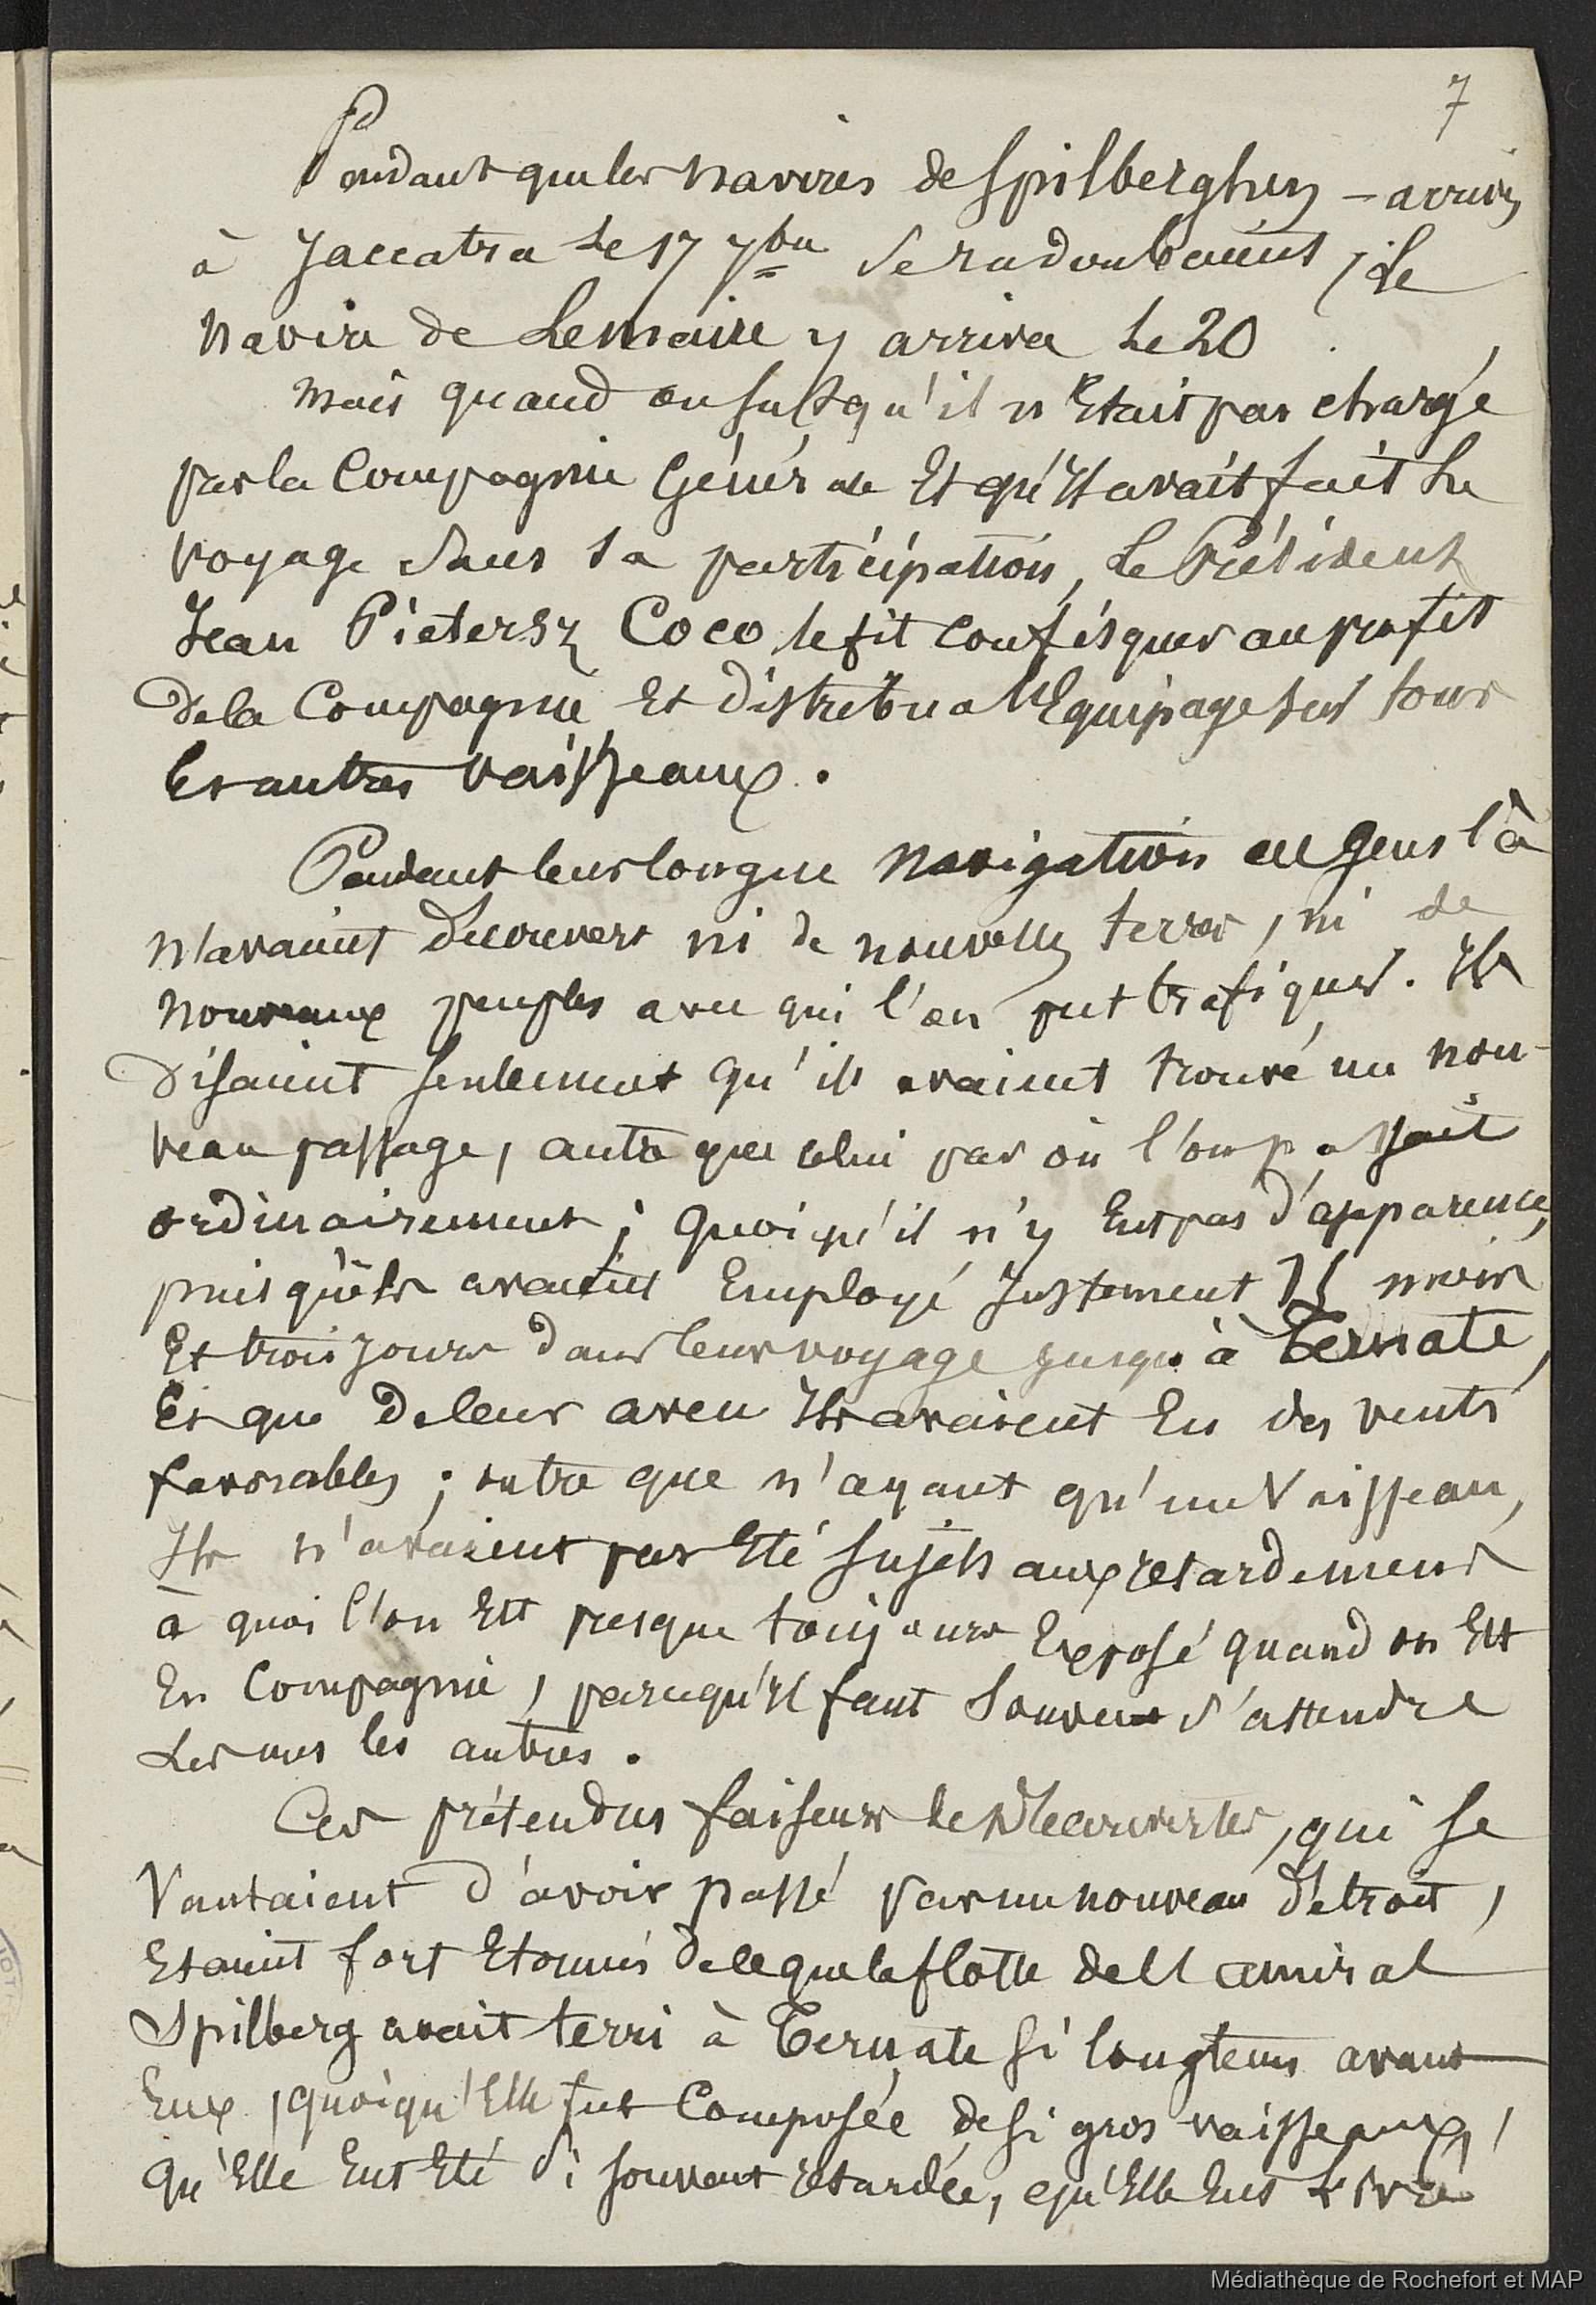 7
Pendant que les navires de Spilberghen – arrivés
à Jaccatra le 17 7bre se radoubaient, le
navire de Lemaire y arriva le 20
Mais quand on sut qu'il n'Etait pas chargé
par la Compagnie Générale Et qu'il avait fait le
voyage sans sa participation, Le Président
Jean Pietersz Coco le fit confisquer au profit
de la Compagnie Et distribua l'Equipage sur tous
les autres vaisseaux.
Pendant leur longue navigation ces gens là
n'avaient découvert ni de nouvelles terres, ni de
nouveaux peuples avec qui l'on put trafiquer. Ils
disaient seulement qu'ils avaient trouvé un nou-
veau passage, autre que celui par où l'on passait
ordinairement ; quoiqu'il n'y Eut pas d'apparence,
puisqu'ils avaient Employé justement 15 mois
Et trois jours dans leur voyage jusqu'à Ternate,
Et que de leur aveu Ils avaient Eu des vents
favorables ; outre que n'ayant qu'un vaisseau,
Ils n'avaient pas Eté sujets aux retardements
à quoi l'on Est presque toujours Exposé quand on Est
En Compagnie, parce qu'il faut souvent s'attendre
Les uns les autres.
Ces prétendus faiseurs de Découvertes, qui se
Vantaient d'avoir passé par un nouveau détroit,
Etaient fort Etonnés de ce que la flotte de l'amiral
Spilberg avait terri à Ternate si longtems avant
Eux, quoiqu'Elle fut Composée de si gros vaisseaux,
qu'Elle Eut Eté si souvent retardée, qu'Elle Eut livré
Médiathèque de Rochefort et MAP